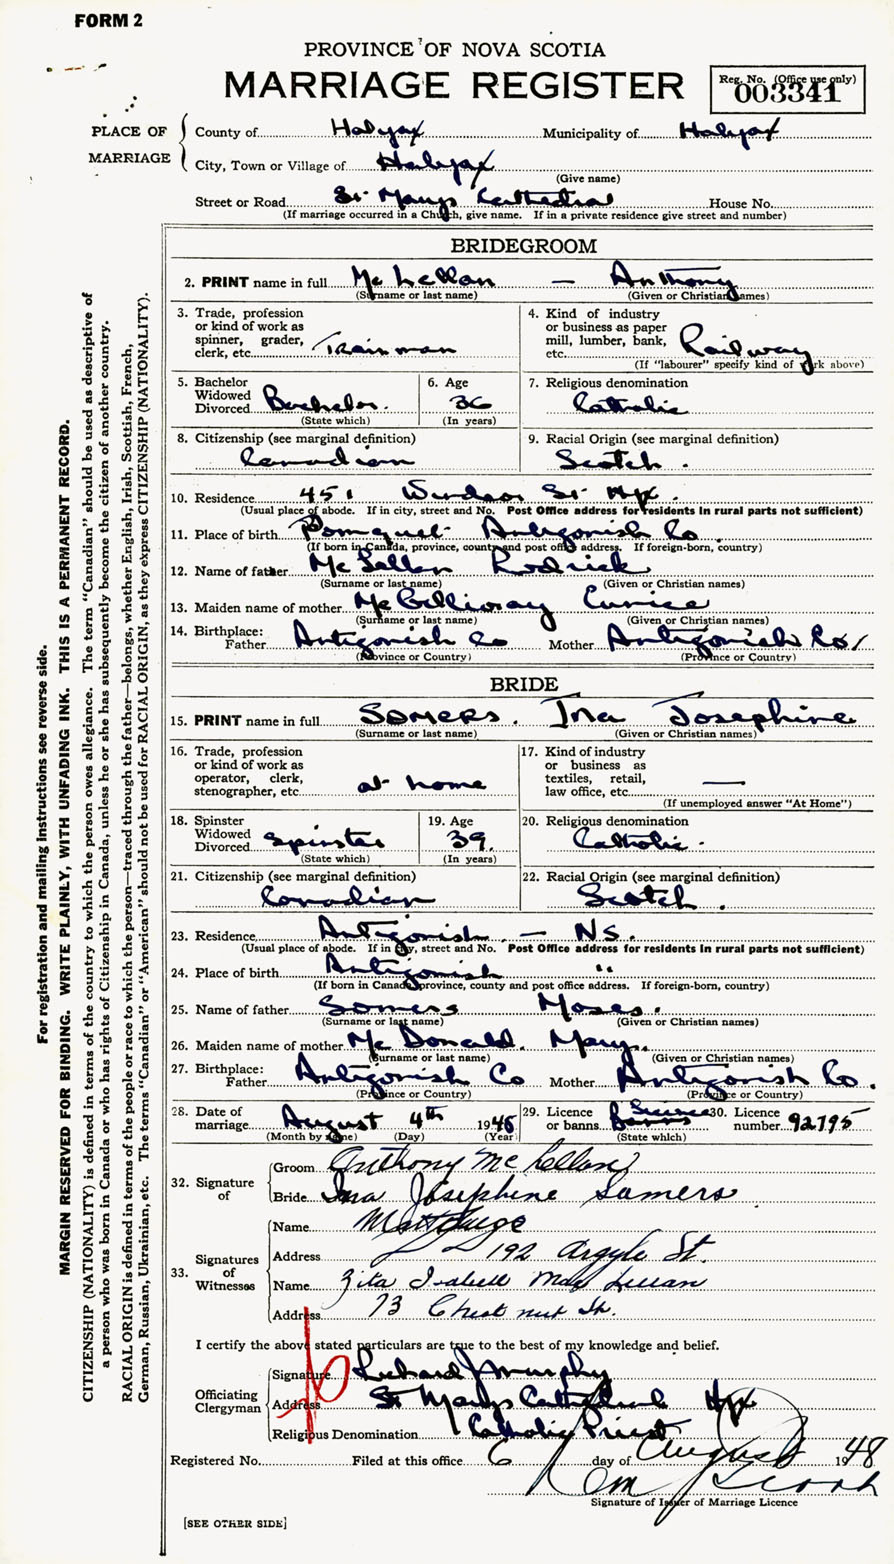 FORM 2
PROVINCE OF NOVA SCOTIA
MARRIAGE REGISTER
Reg. No. (Office use only)
003341
PLACE OF MARRIAGE
County of Halifax Municipality of Halifax
City, Town or Village of Halifax
(Give name)
Street or Road St Marys Cathedral House No.
(If marriage occurred in a Church, give name. If in a private residence give street and number)
BRIDEGROOM
2. PRINT name in full Mc Lellan — Anthony
(Surname or last name) (Given or Christian names)
3. Trade, profession or kind of work as spinner, grader, clerk, etc. Trainman
4. Kind of industry or business as paper mill, lumber, bank, etc. Railway
(If "labourer" specify kind of work above)
5. Bachelor Widowed Divorced Bachelor.
(State which)
6. Age 36
(In years)
7. Religious denomination Catholic
8. Citizenship (see marginal definition) Canadian
9. Racial Origin (see marginal definition) Scotch.
10. Residence 451 Windsor St Hfx.
(Usual place of abode. If in city, street and No. Post Office address for residents in rural parts not sufficient)
11. Place of birth Pomquet Antigonish Co
(If born in Canada, province, county and post office address. If foreign-born, country)
12. Name of father Mc Lellan Rodrick
(Surname or last name) (Given or Christian names)
13. Maiden name of mother Mc Gillivray Eunice
(Surname or last name) (Given or Christian names)
14. Birthplace: Father Antigonish Co Mother Antigonish Co/
(Province or Country) (Province or Country)
BRIDE
15. PRINT name in full SOMERS. Ina Josephine
(Surname or last name) (Given or Christian names)
16. Trade, profession or kind of work as operator, clerk, stenographer, etc. at home
17. Kind of industry or business as textiles, retail, law office, etc. —
(If unemployed answer "At Home")
18. Spinster Widowed Divorced Spinster
(State which)
19. Age 39.
(In years)
20. Religious denomination Catholic.
21. Citizenship (see marginal definition) Canadian
22. Racial Origin (see marginal definition) Scotch.
23. Residence Antigonish — NS.
(Usual place of abode. If in city, street and No. Post Office address for residents in rural parts not sufficient)
24. Place of birth Antigonish "
(If born in Canada, province, county and post office address. If foreign-born, country)
25. Name of father Somers Moses.
(Surname or last name) (Given or Christian names)
26. Maiden name of mother Mc Donald. Mary.
(Surname or last name) (Given or Christian names)
27. Birthplace: Father Antigonish Co Mother Antigonish Co.
(Province or Country) (Province or Country)
28. Date of marriage August 4th 1948
(Month by name) (Day) (Year)
29. Licence or banns Banns License
(State which)
30. Licence number 92795
32. Signature of
Groom Anthony McLellan
Bride Ina Josephine Somers
33. Signatures of Witnesses
Name
Address 192 Argyle St.
Name Zita Isabell MacLellan
Address 73 Chestnut St.
I certify the above stated particulars are true to the best of my knowledge and belief.
Officiating Clergyman
Signature Richard J Murphy
Address St Marys Cathedral Hfx
Religious Denomination Catholic Priest
Registered No. Filed at this office 6 day of August 1948
Signature of Issuer of Marriage Licence
[SEE OTHER SIDE]
For registration and mailing instructions see reverse side.
MARGIN RESERVED FOR BINDING. WRITE PLAINLY, WITH UNFADING INK. THIS IS A PERMANENT RECORD.
CITIZENSHIP (NATIONALITY) is defined in terms of the country to which the person owes allegiance. The term "Canadian" should be used as descriptive of
a person who was born in Canada or who has rights of Citizenship in Canada, unless he or she has subsequently become the citizen of another country.
RACIAL ORIGIN is defined in terms of the people or race to which the person—traced through the father—belongs, whether English, Irish, Scottish, French,
German, Russian, Ukrainian, etc. The terms "Canadian" or "American" should not be used for RACIAL ORIGIN, as they express CITIZENSHIP (NATIONALITY).